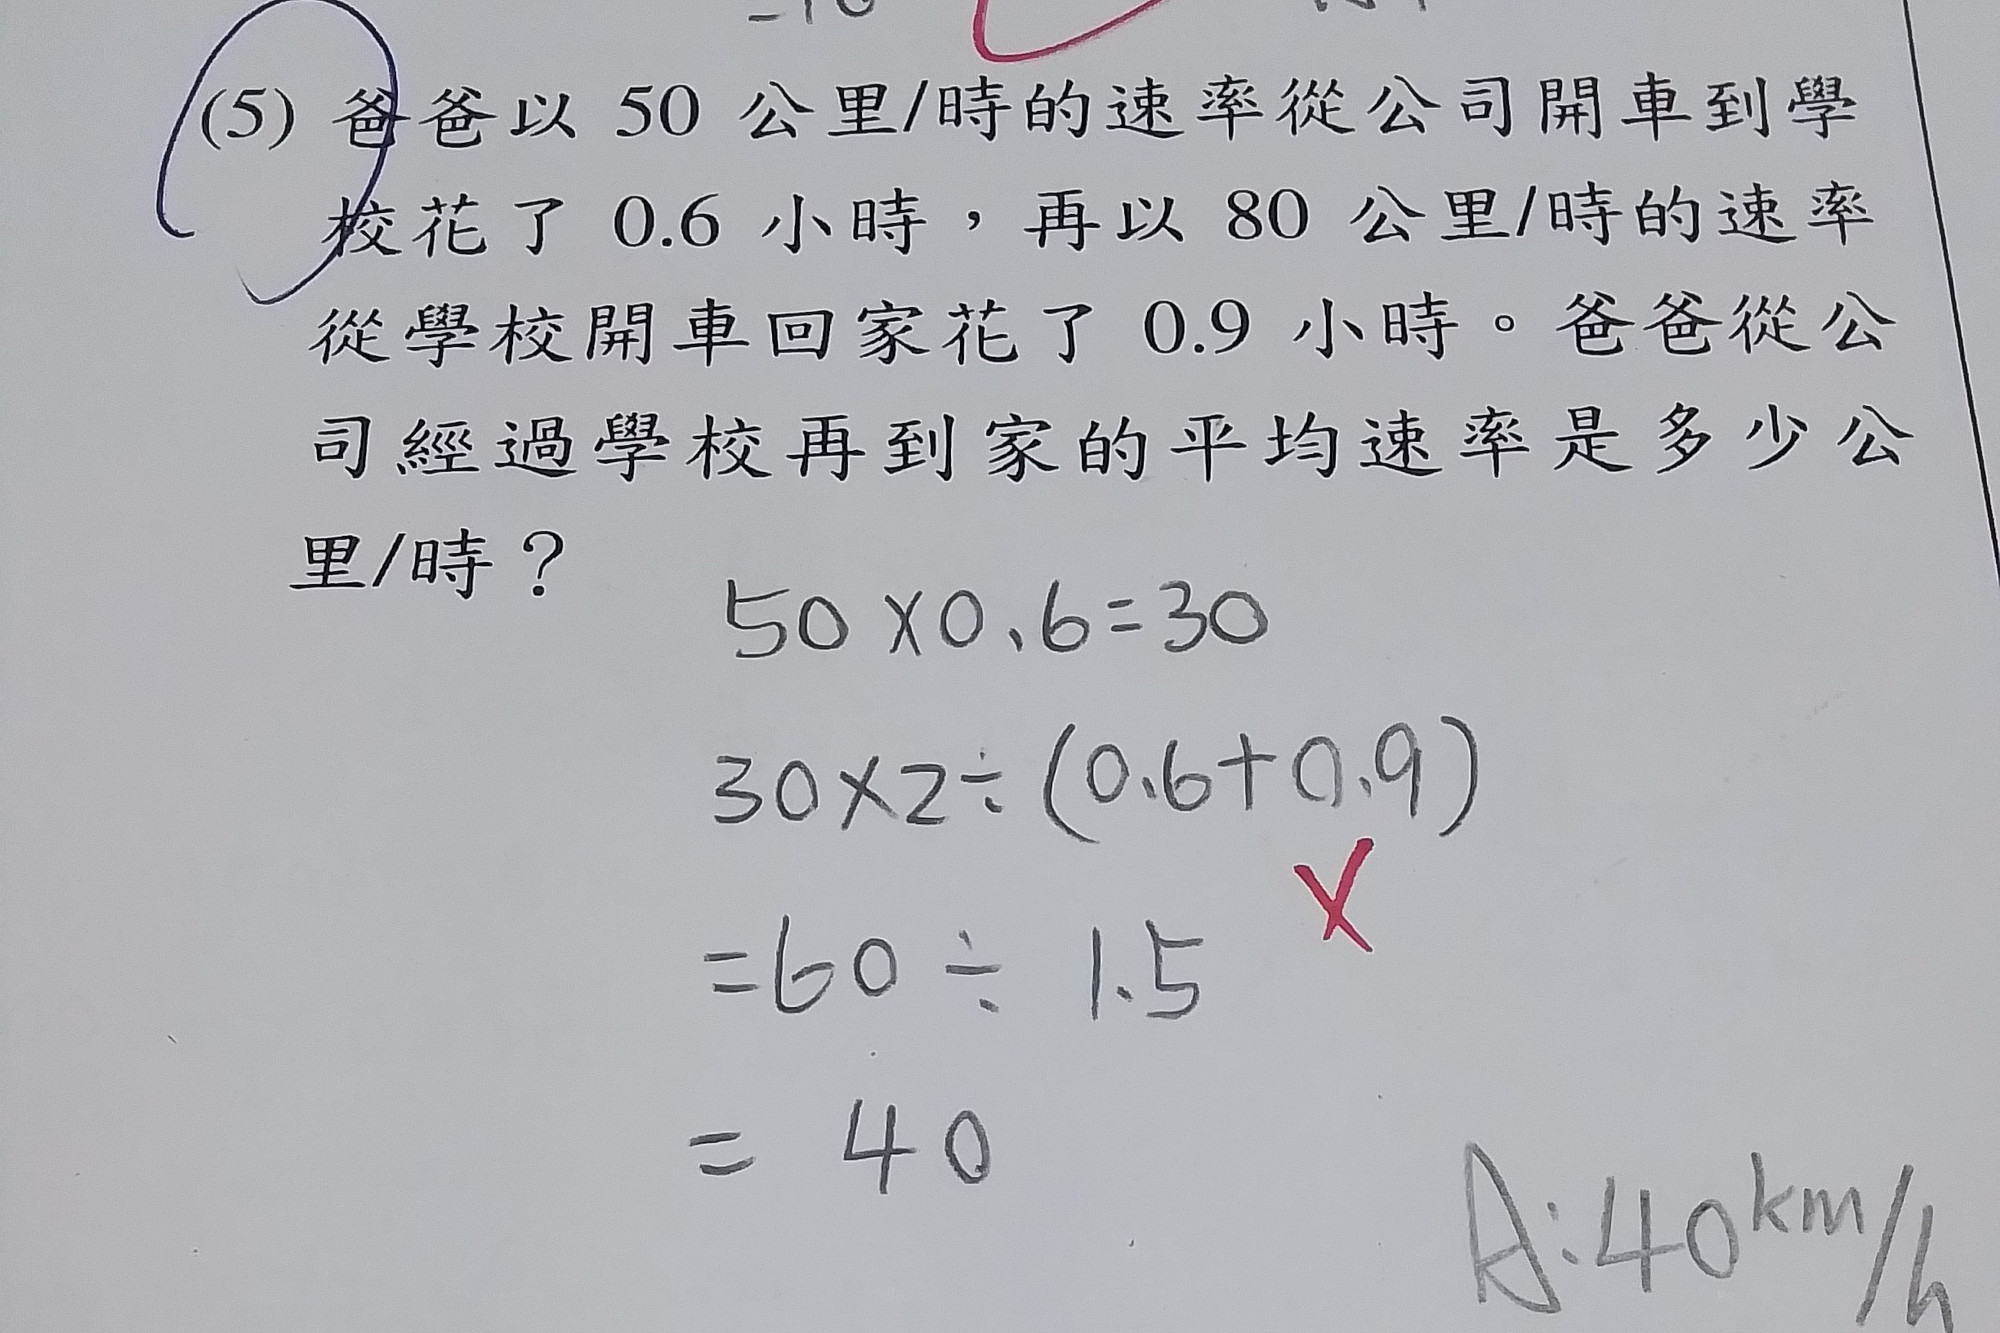 (5) 爸爸以 50 公里/時的速率從公司開車到學
校花了 0.6 小時，再以 80 公里/時的速率
從學校開車回家花了 0.9 小時。爸爸從公
司經過學校再到家的平均速率是多少公
里/時？
50×0.6=30
30×2÷(0.6+0.9)
=60÷1.5
=40
A:40km/h